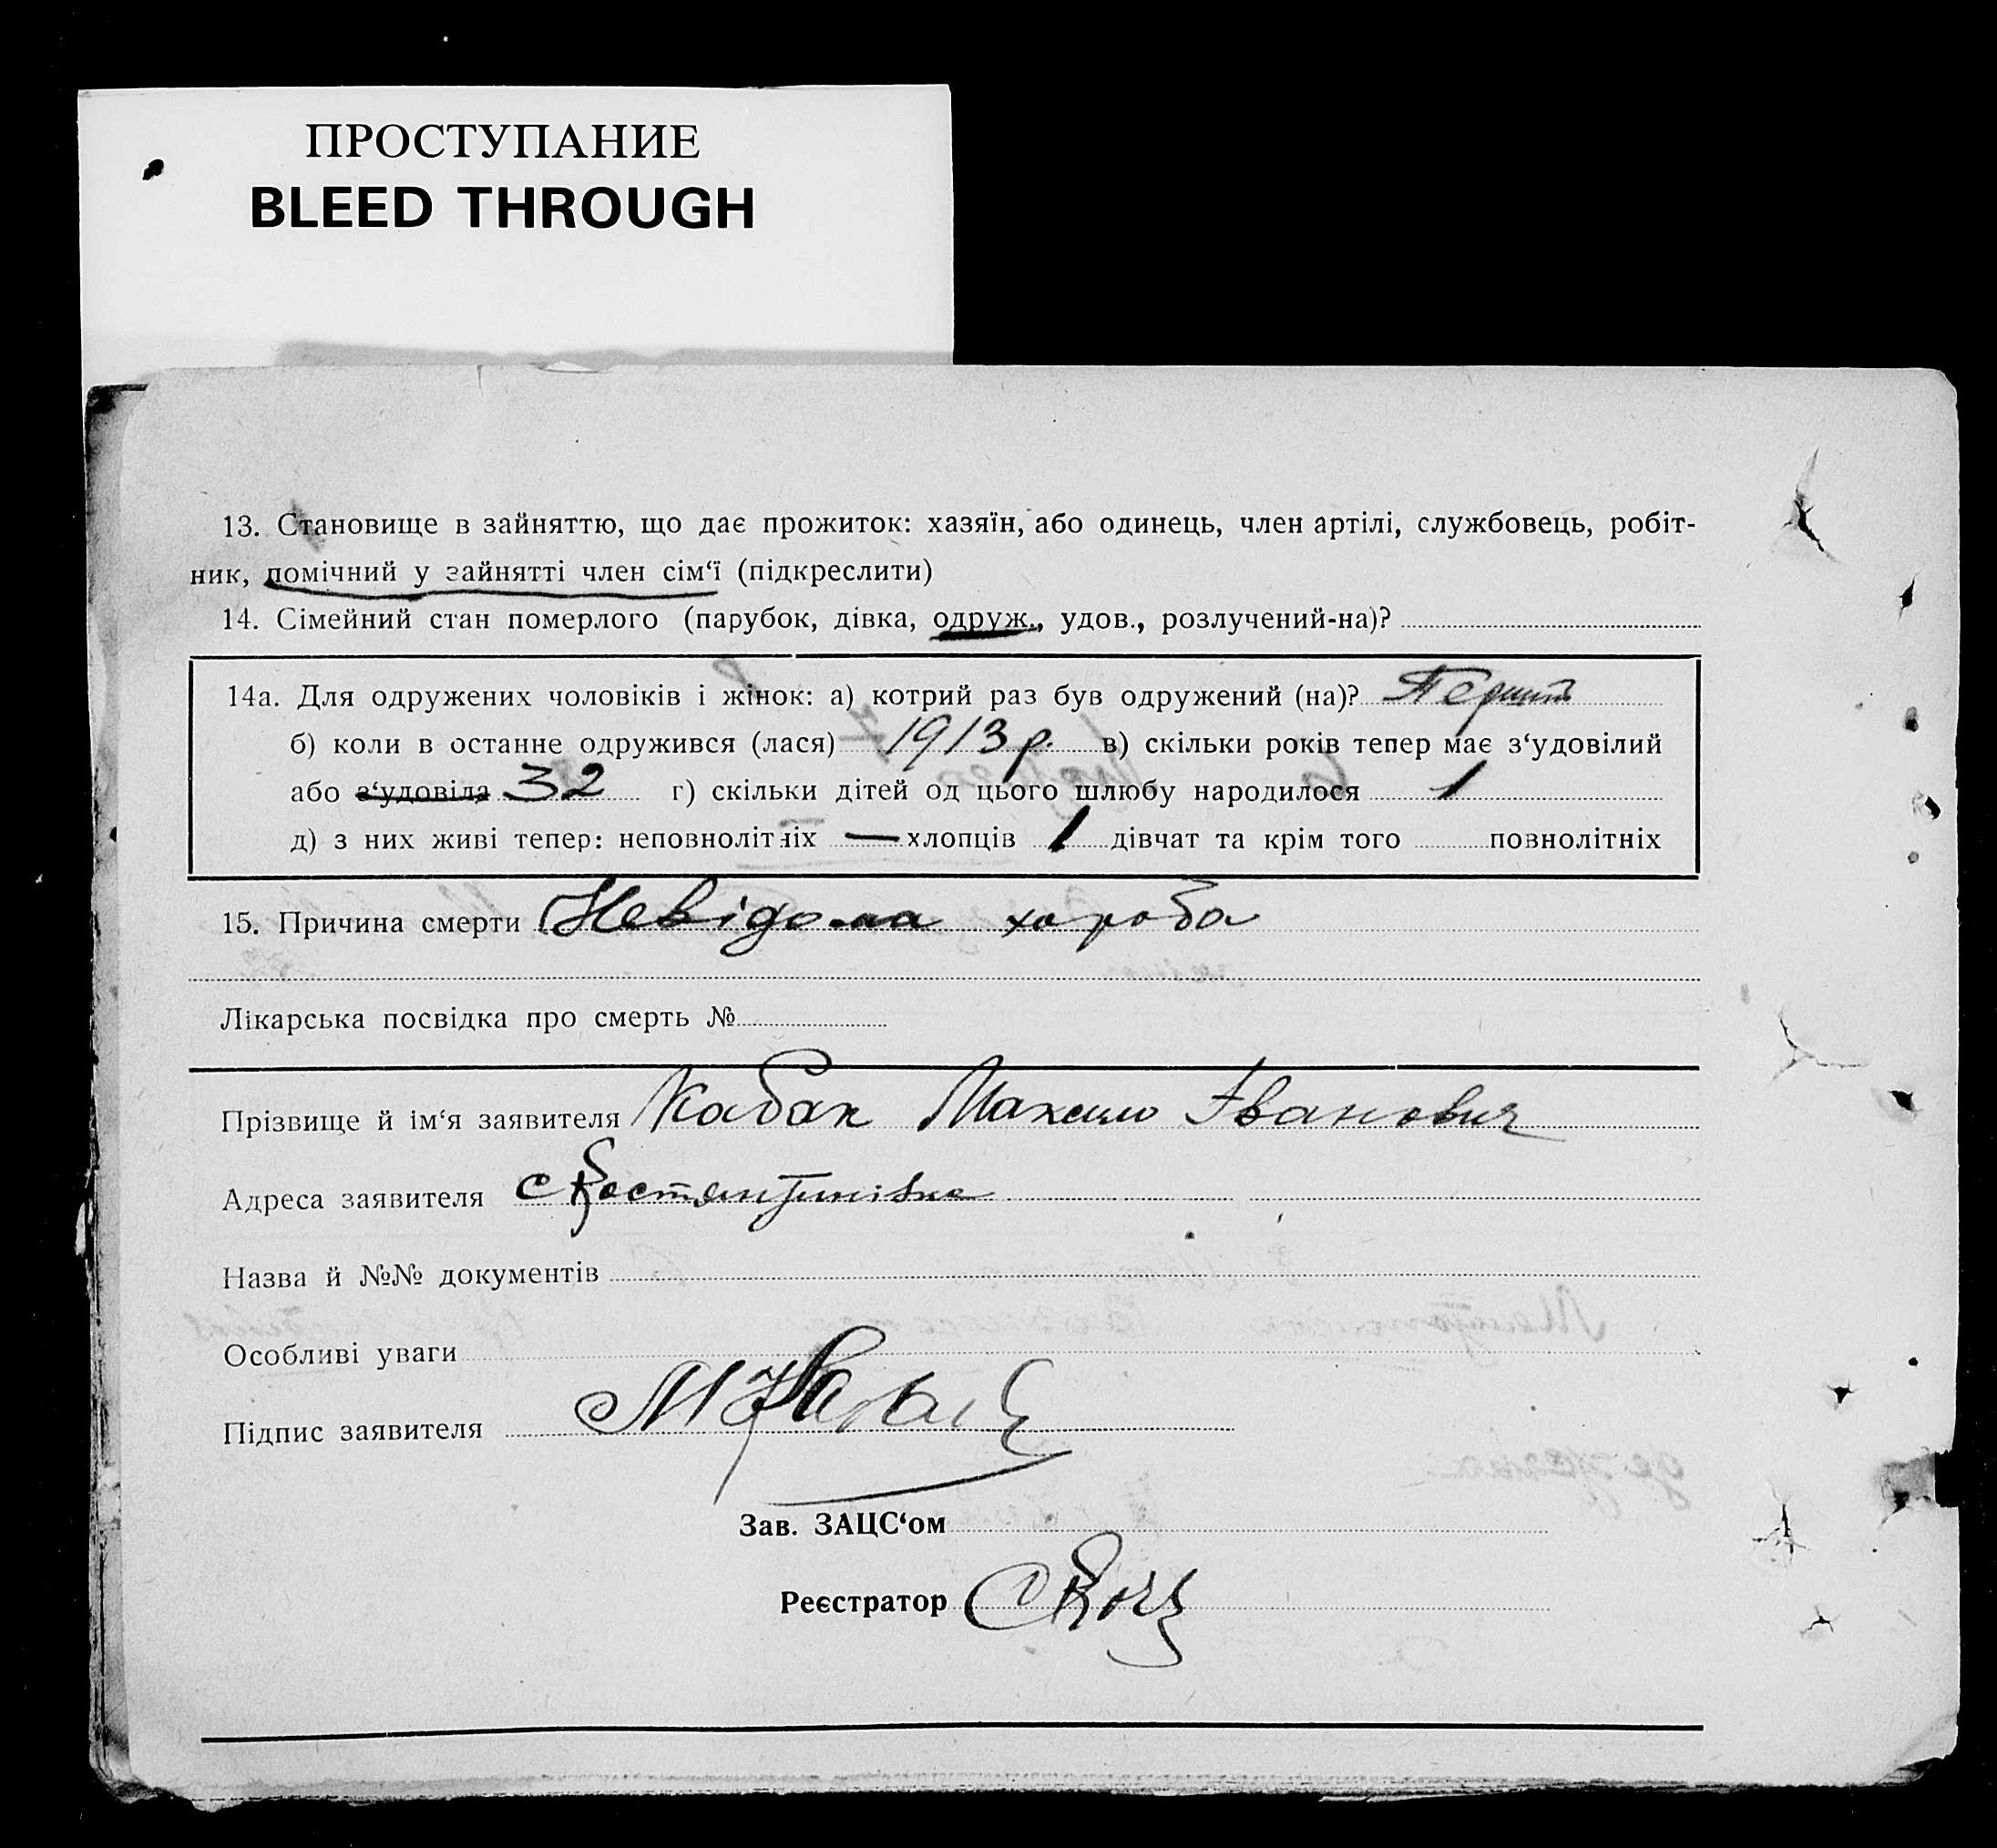 ПРОСТУПАНИЕ
BLEED THROUGH
13. Становище в зайняттю, що дає прожиток: хазяїн, або одинець, член артілі, службовець, робіт-
ник, помічний у зайнятті член сім‘ї (підкреслити)
14. Сімейний стан померлого (парубок, дівка, одруж., удов., розлучений-на)?
14а. Для одружених чоловіків і жінок: а) котрий раз був одружений (на)? Перший
б) коли в останнє одружився (лася) 1913 р. в) скільки років тепер має з‘удовілий
або з‘удовіла 32 г) скільки дітей од цього шлюбу народилося 1
д) з них живі тепер: неповнолітніх — хлопців 1 дівчат та крім того повнолітніх
15. Причина смерти Невідома хороба
Лікарська посвідка про смерть №
Прізвище й ім‘я заявителя Кабак Максим Іванович
Адреса заявителя с Костянтинівка
Назва й №№ документів
Особливі уваги
Підпис заявителя
Зав. ЗАЦС‘ом
Реєстратор